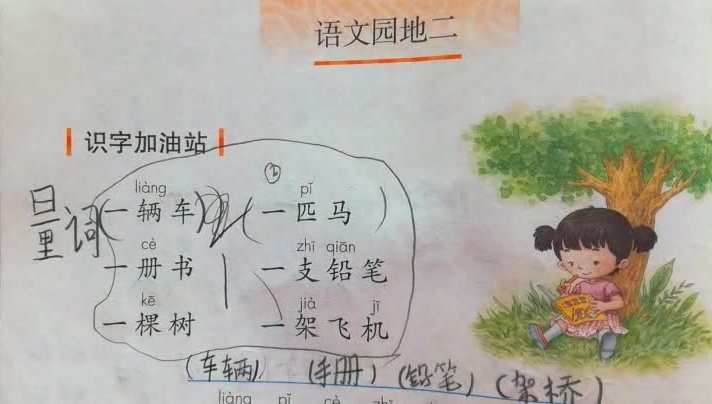 语文园地二
识字加油站
②
liàng pǐ
量词 (一辆车) (一匹马)
cè zhī qiān
一册书 一支铅笔
kē jià jī
一棵树 一架飞机
(车辆) (手册) (铅笔) (架桥)
liàng pǐ cè